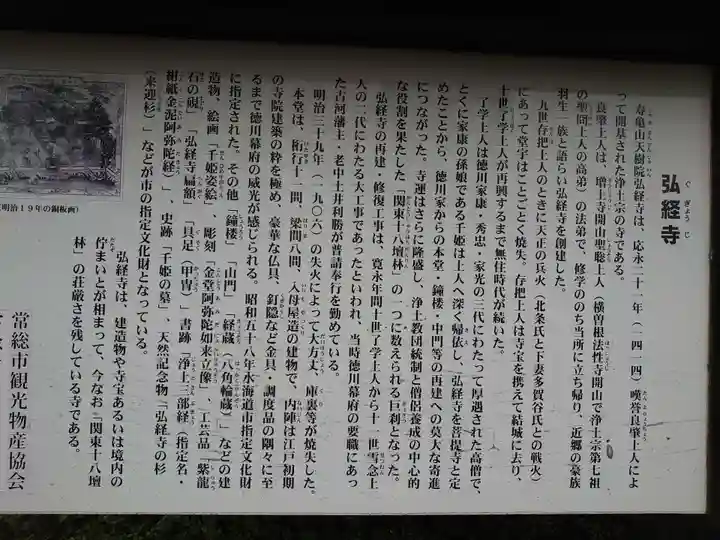 弘経寺
ぐぎょうじ
寿亀山天樹院弘経寺は、応永二十一年（一四一四）嘆誉良肇上人によ
って開基された浄土宗の寺である。
良肇上人は、増上寺開山聖聡上人（横曽根法性寺開山で浄土宗第七祖
の聖冏上人の高弟）の法弟で、修学ののち当所に立ち帰り、近郷の豪族
羽生一族と語らい弘経寺を創建した。
九世存把上人のときに天正の兵火（北条氏と下妻多賀谷氏との戦火）
にあって堂宇はことごとく焼失。存把上人は寺宝を携えて結城に去り、
十世了学上人が再興するまで無住時代が続いた。
了学上人は徳川家康・秀忠・家光の三代にわたって厚遇された高僧で、
とくに家康の孫娘である千姫は上人へ深く帰依し、弘経寺を菩提寺と定
めたことから、徳川家からの本堂・鐘楼・中門等の再建への莫大な寄進
につながった。寺運はさらに隆盛し、浄土教団統制と僧侶養成の中心的
な役割を果たした「関東十八壇林」の一つに数えられる巨刹となった。
弘経寺の再建、修復工事は、寛永年間十世了学上人から十一世雪念上
人の二代にわたる大工事であったといわれ、当時徳川幕府の要職にあっ
た古河藩主・老中土井利勝が普請奉行を勤めている。
明治三十九年（一九〇六）の失火によって大方丈、庫裏等が焼失した。
本堂は、桁行十一間、梁間八間、入母屋造の建物で、内陣は江戸初期
の寺院建築の粋を極め、豪華な仏具、釘隠など金具・調度品の隅々に至
るまで徳川幕府の威光が感じられる。昭和五十八年水海道市指定文化財
に指定された。その他「鐘楼」「山門」「経蔵（八角輪蔵）」などの建
造物、絵画「千姫姿絵」、彫刻「金堂阿弥陀如来立像」、工芸品「紫龍
石の硯」「弘経寺扁額」「具足（甲冑）」書跡「浄土三部経（指定名・
紺紙金泥阿弥陀経）」、史跡「千姫の墓」、天然記念物「弘経寺の杉
（来迎杉）」などが市の指定文化財となっている。
弘経寺は、建造物や寺宝あるいは境内の
佇まいとが相まって、今なお「関東十八壇
林」の荘厳さを残している寺である。
常総市観光物産協会
（明治１９年の銅板画）